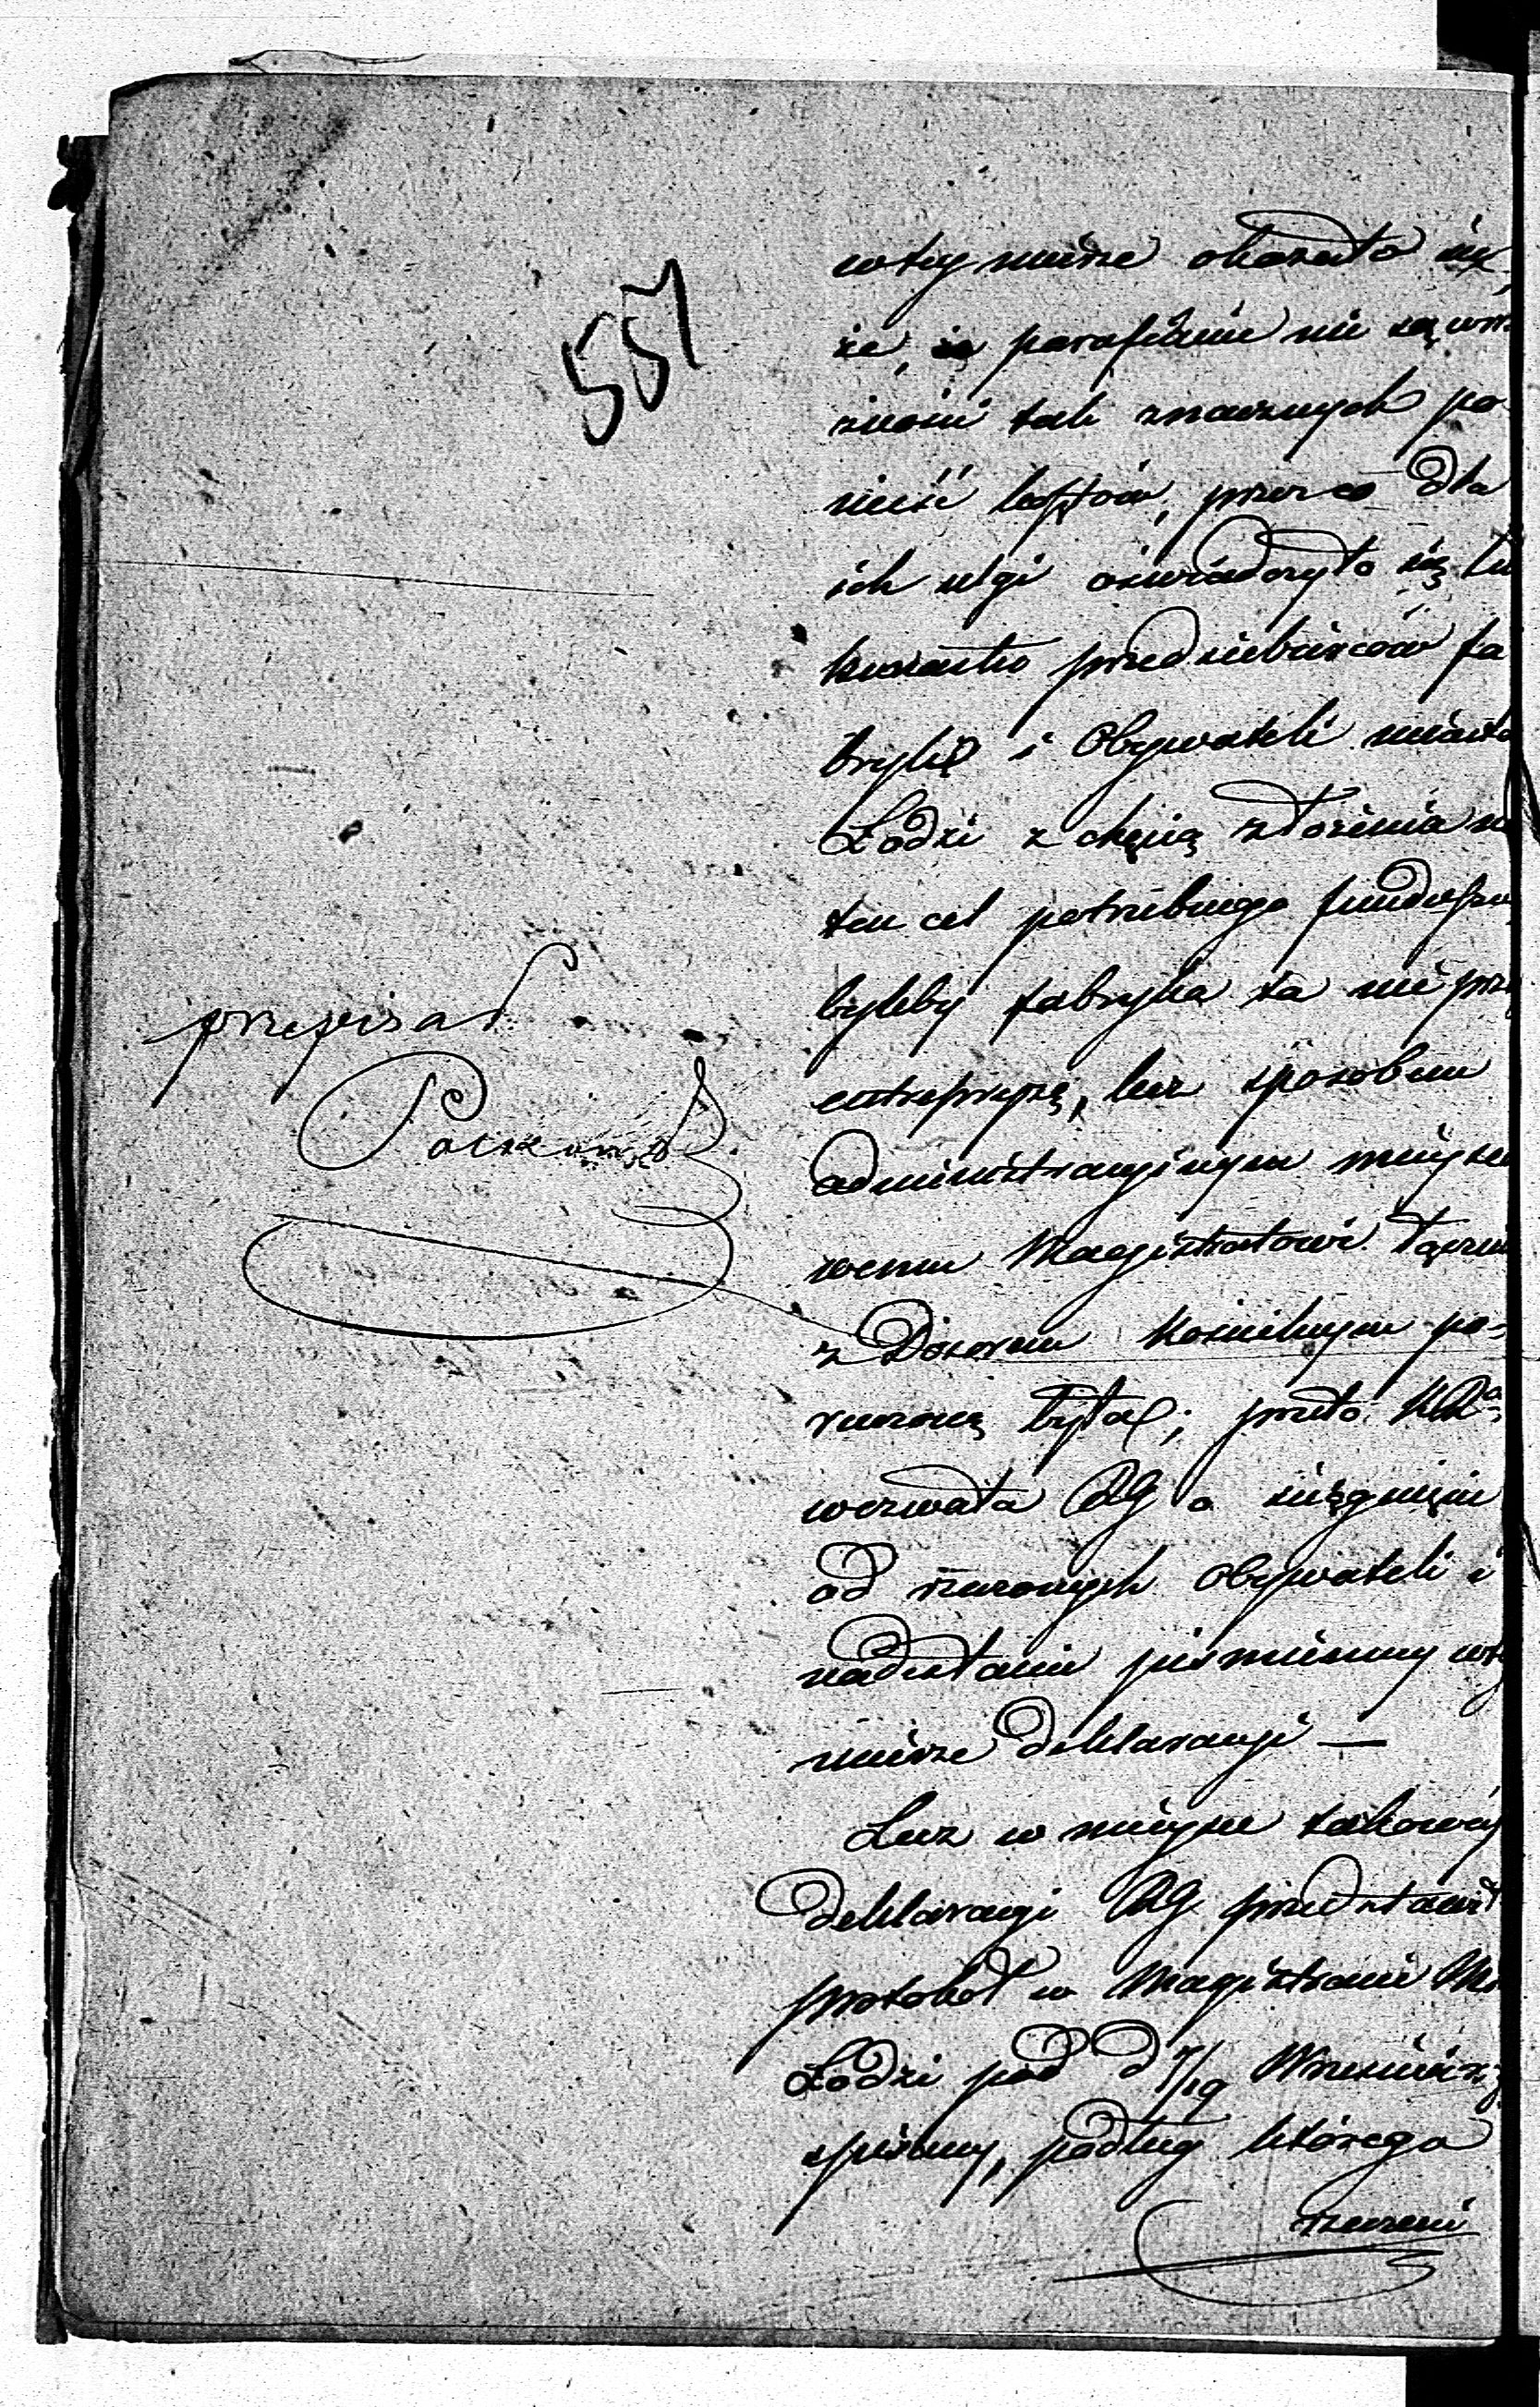 557
w tey mierze okazało się,
że, że parafianie nie są w mo
żności tak znacznych po
nieść kosztów, przeto dla
ich ulgi oświadczyło się kil
kunastu przedsiębierców fa
bryk i Obywateli miasta
Łodzi z chęcią złożenia na
ten cel potrzebnego funduszu
byleby fabryka ta nie prze
entrepryzę, lecz sposobem
administracyjnym mieysco
wemu Magistratowi łącznie
z Dozorem kościelnym po-
ruczoną była; przeto KRa
wezwała RG o ściągnięcie
od rzeczonych Obywateli i
nadesłanie piśmienney w tey
mierze deklaracyi —
Lecz w mieysce takowey
deklaracyi RG przedstawił
protokół w Magistracie M
Łodzi pod d 7/19 Września
spisany, podług którego
rzeczeni
przepisał